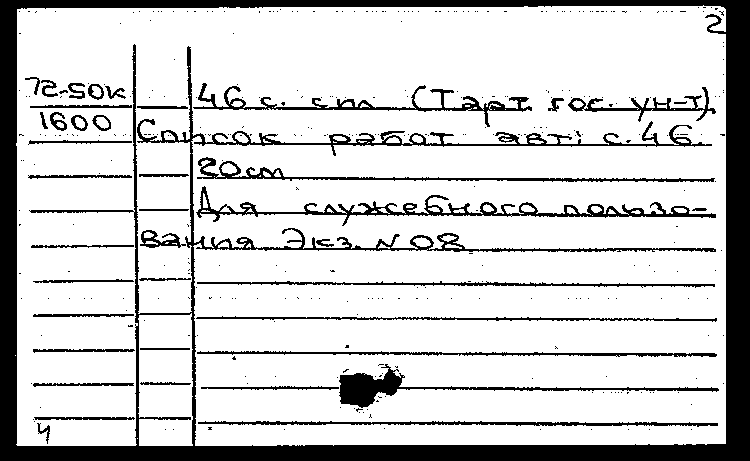 2
72-50к 46 с. сил (Тарт. гос. ун-т).
1600 Список работ авт: с. 46.
20см
Для служебного пользо-
вания Экз. N 08
4